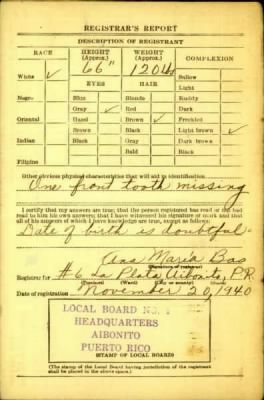 REGISTRAR'S REPORT
DESCRIPTION OF REGISTRANT
RACE HEIGHT (Approx.) WEIGHT (Approx.) COMPLEXION
66" 120 lb
White ✓ EYES HAIR Sallow
Light
Negro Blue Blonde Ruddy
Gray ✓ Red Dark
Oriental Hazel Brown ✓ Freckled
Brown Black Light brown ✓
Indian Black Gray Dark brown
Bald Black
Filipino
Other obvious physical characteristics that will aid in identification
One front tooth missing
I certify that my answers are true; that the person registered has read or has had
read to him his own answers; that I have witnessed his signature or mark and that
all of his answers of which I have knowledge are true, except as follows:
Date of birth is doubtful
Ana Maria Bas
(Signature of registrar)
Registrar for #6 La Plata Aibonito, P.R.
(Precinct) (Ward) (City or county) (State)
Date of registration November 20, 1940
LOCAL BOARD NO. 1
HEADQUARTERS
AIBONITO
PUERTO RICO
(STAMP OF LOCAL BOARD)
(The stamp of the Local Board having jurisdiction of the registrant
shall be placed in the above space.)